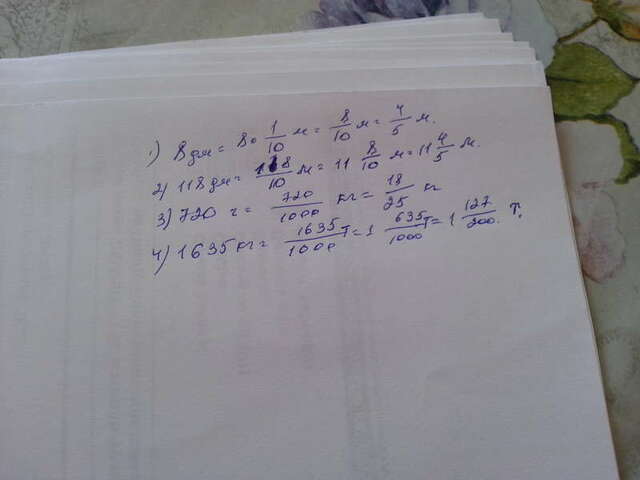 1) 8 дм = 8 · 1/10 м = 8/10 м = 4/5 м.
2) 118 дм = 118/10 м = 11 8/10 м = 11 4/5 м.
3) 720 г = 720/1000 кг = 18/25 кг
4) 1635 кг = 1635/1000 т = 1 635/1000 т = 1 127/200. т.